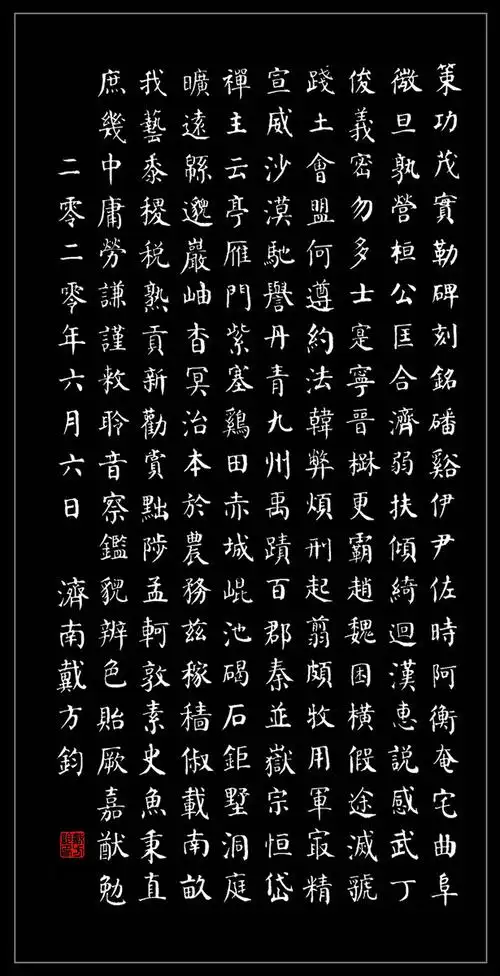 策功茂實勒碑刻銘磻谿伊尹佐時阿衡奄宅曲阜
微旦孰營桓公匡合濟弱扶傾綺迴漢惠説感武丁
俊義密勿多士寔寧晉楚更霸趙魏困橫假途滅虢
踐土會盟何遵約法韓弊煩刑起翦頗牧用軍冣精
宣威沙漠馳譽丹青九州禹蹟百郡秦並嶽宗恒岱
禪主云亭雁門紫塞鷄田赤城崐池碣石鉅墅洞庭
曠遠緜邈巖岫杳冥治本於農務茲稼穡俶載南畝
我藝黍稷税熟貢新勸賞黜陟孟軻敦素史魚秉直
庶幾中庸勞謙謹敕聆音察鑑貌辨色貽厥嘉猷勉
二零二零年六月六日 濟南戴方鈞